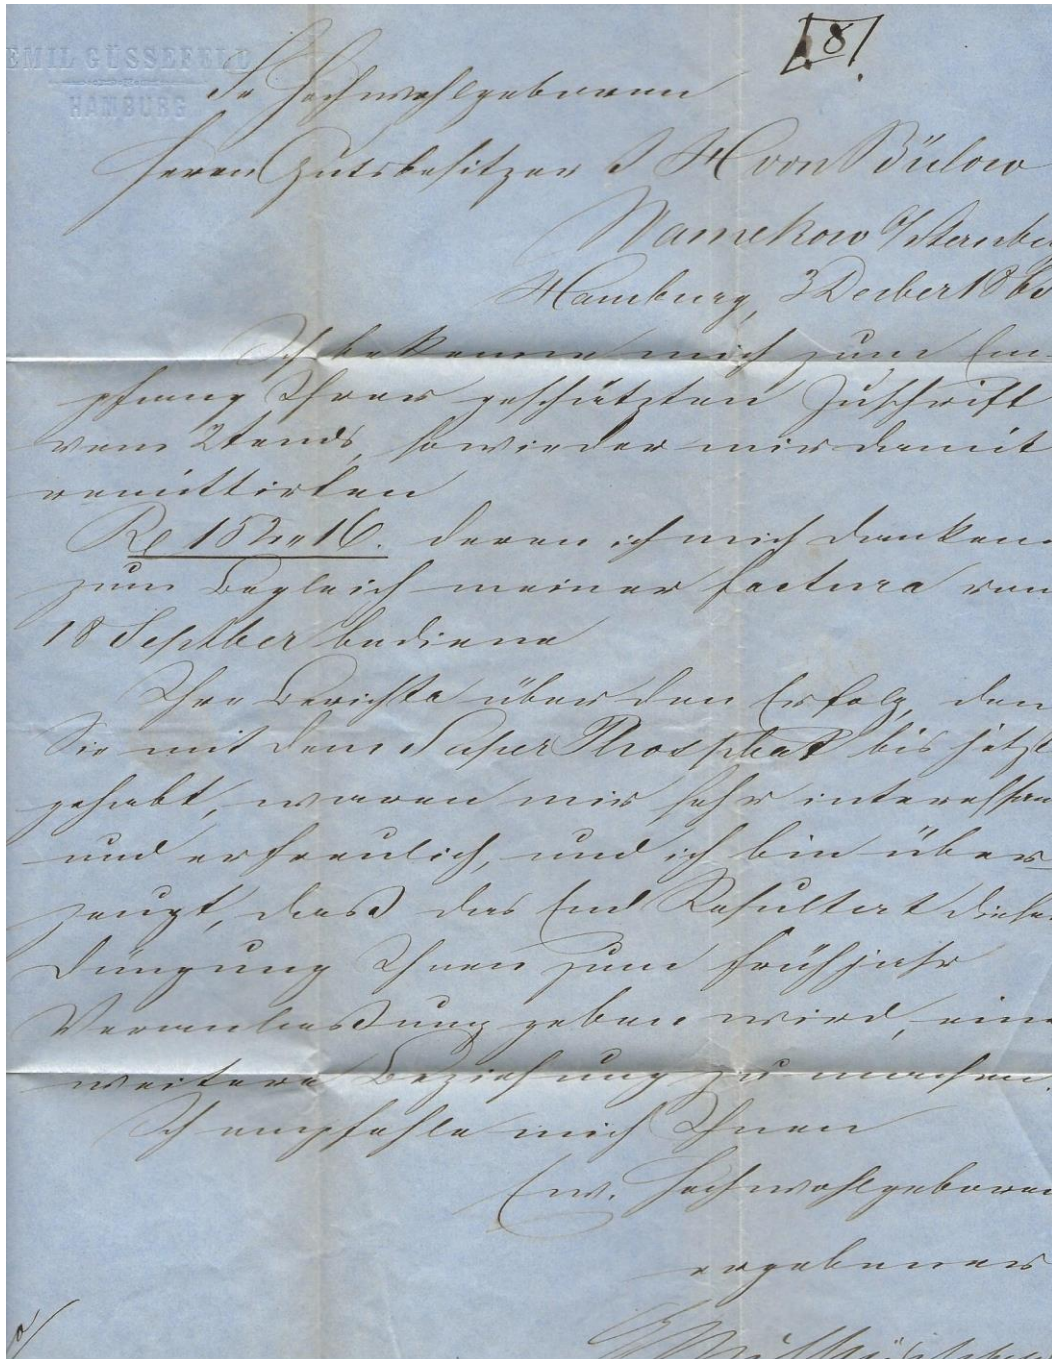 EMIL GÜSSEFELD
HAMBURG
8
Sr Hochwohlgeboren
Herrn Gutsbesitzer H von Bülow
Wamekow a/Sternbe
Hamburg, 3 Decber 186
Ich bekenne mich zum Em-
pfang Ihrer geschätzten Zuschrift
vom 2tends, sowie der mir damit
remittirten
R 152 „ 16. deren ich mich danken
zum Begleich meiner Factura von
18 Septber bediene
Ihre Berichte über den Erfolg, den
Sie mit dem Super Phosphat bis jetzt
gehabt, waren mir sehr interessan
und erfreulich, und ich bin über
zeugt, dass das End Resultat dieser
Düngung Ihnen zum Frühjahr
Veranlassung geben wird, eine
weitere Beziehung zu machen.
Ich empfehle mich Ihnen
Ew. Hochwohlgeboren
ergebener